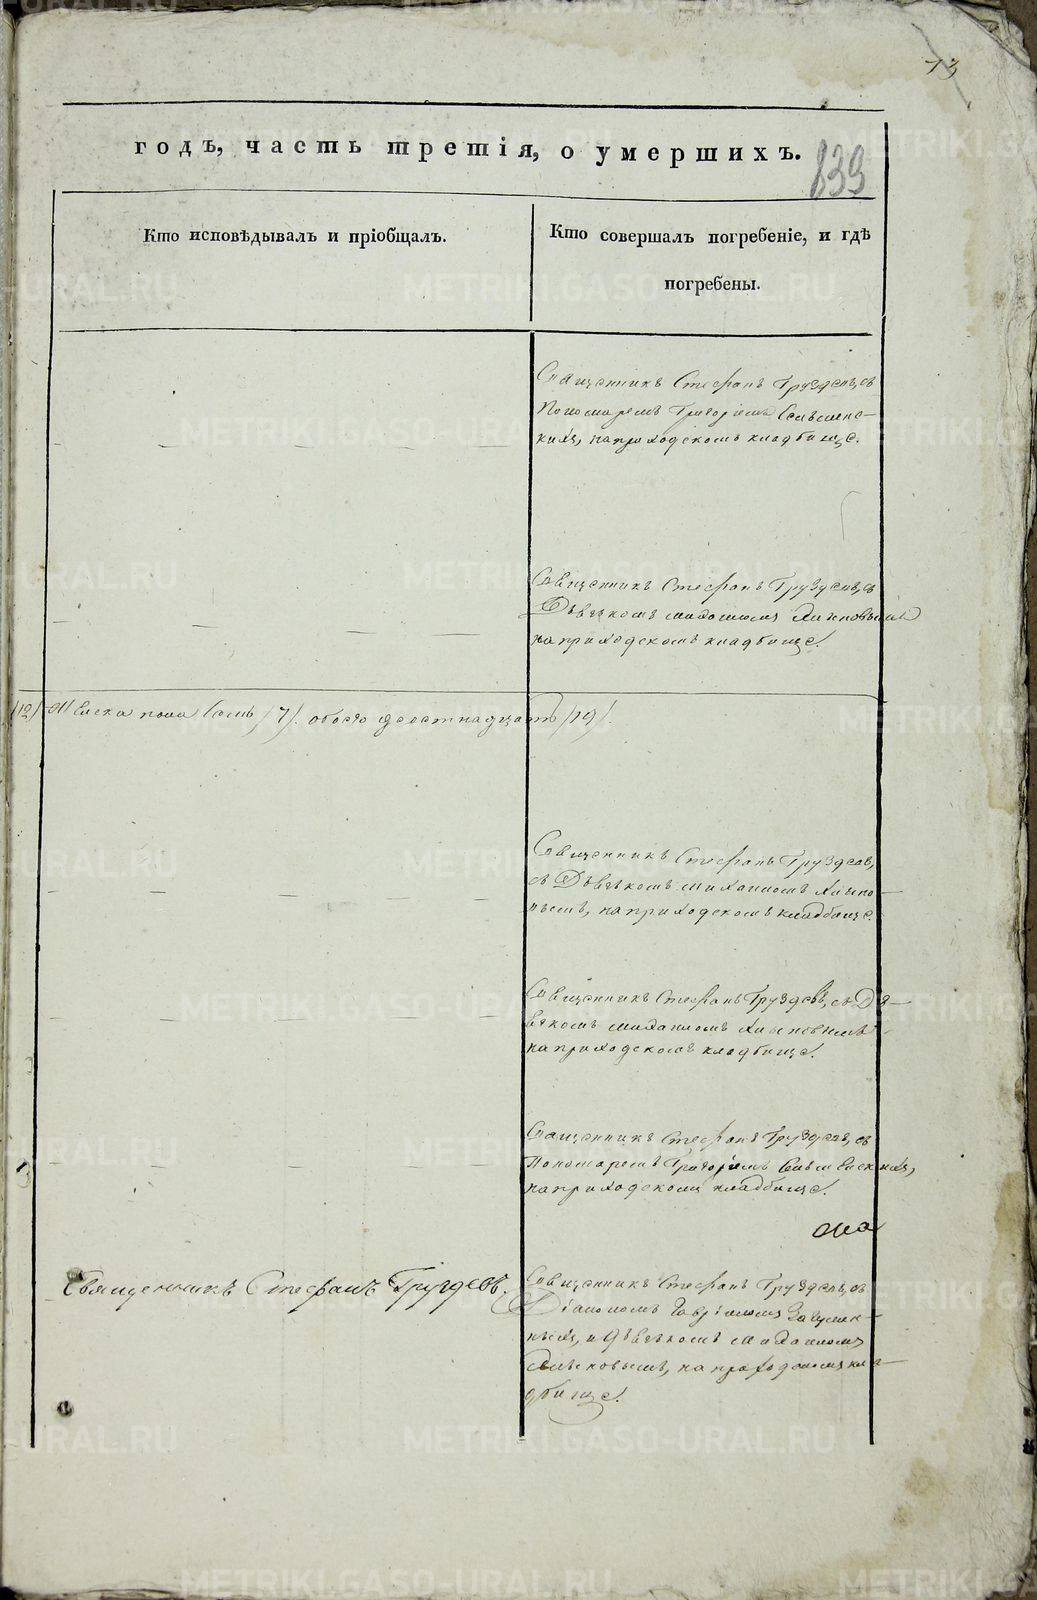 73
годъ, часть третія, о умершихъ.
839
Кто исповѣдывалъ и пріобщалъ.
Кто совершалъ погребеніе, и гдѣ
погребены.
Священникъ Стефанъ Груздевъ, съ
Пономаремъ Григоріемъ
на приходскомъ кладбище.
Священникъ Стефанъ Груздевъ, съ
Дьячкомъ
на приходскомъ кладбище.
/12/ Женска пола семь /7/. обоего девятнадцать /19/.
Священникъ Стефанъ Груздевъ,
съ Дьячкомъ
на приходскомъ кладбище.
Священникъ Стефанъ Груздевъ, съ Дь-
ячкомъ
на приходскомъ кладбище.
Священникъ Стефанъ Груздевъ, съ
Пономаремъ Григоріемъ
на приходскомъ кладбище.
Священникъ Стефанъ Груздевъ.
Священникъ Стефанъ Груздевъ, съ
Діакономъ
и Дьячкомъ
на приходскомъ кла-
дбище.
METRIKI.GASO-URAL.RU